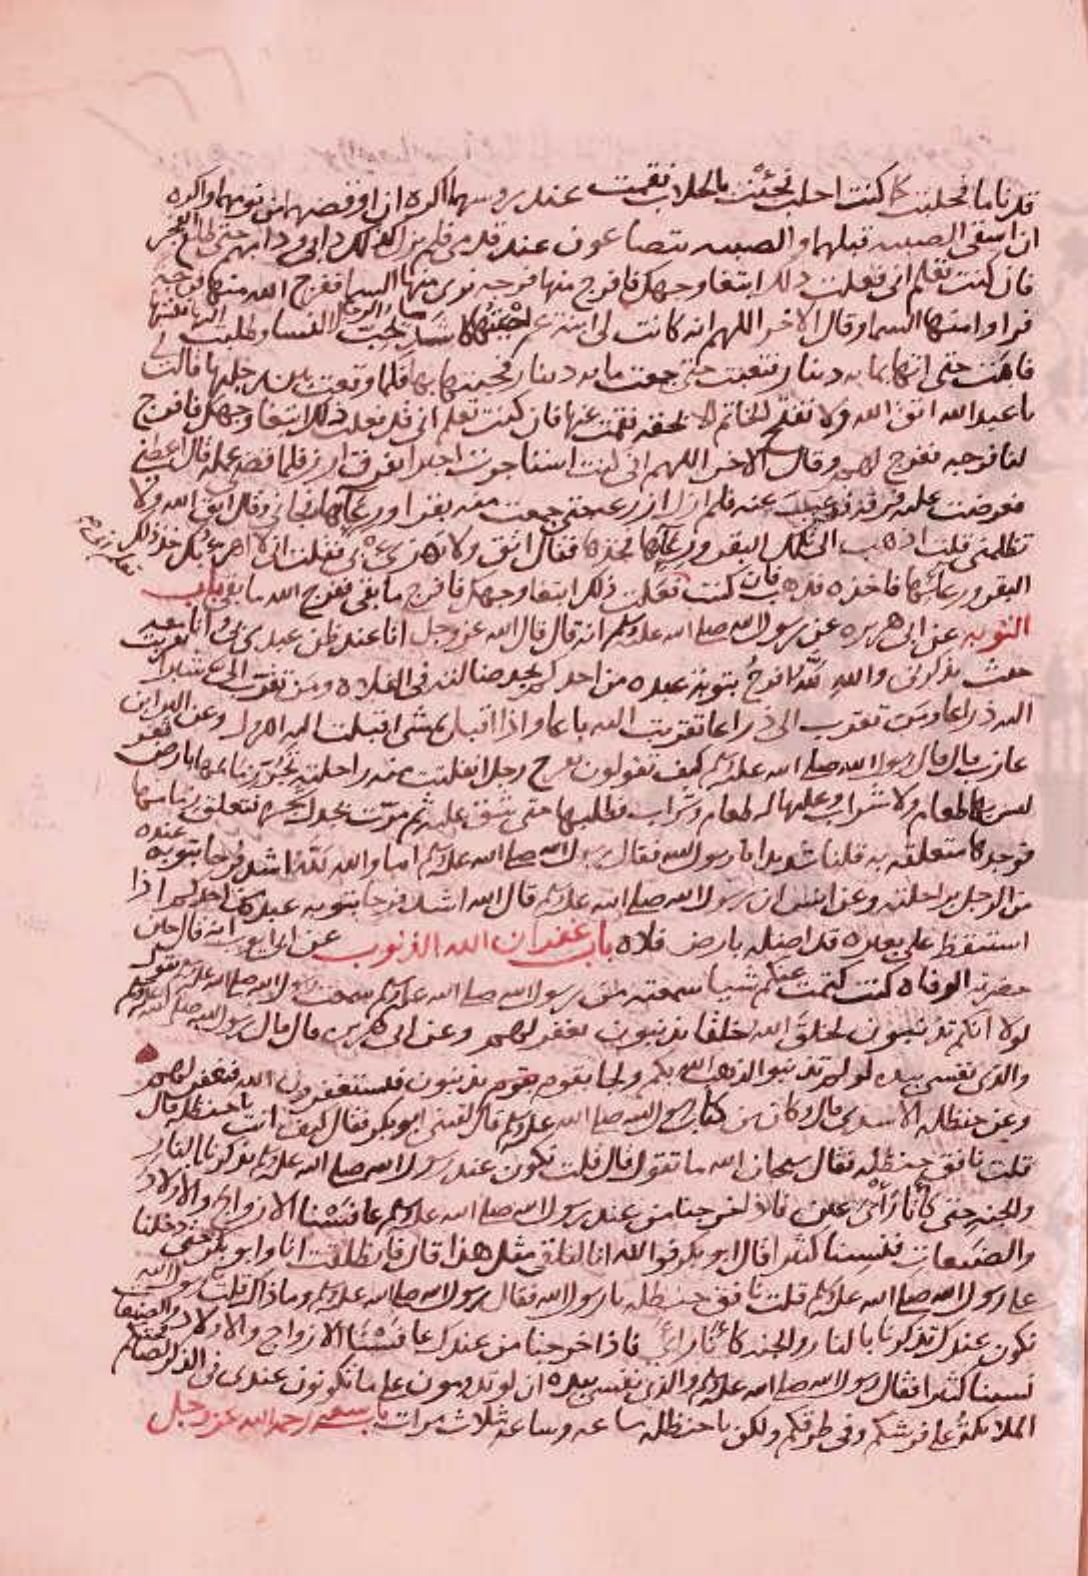 قد ناما فحلبت كما كنت احلب فجئت بالحلاب فقمت عند روسهما اكره ان اوقضهما من نومهما واكره
ان اسقي الصبيه قبلهما والصبيه يتضاعون عند قدمي فلم يزل ذلك دابي ودابهم حتى طلع الفجر
فان كنت تعلم اني فعلت ذلك ابتغا وجهك فافرج منها فرجه نرى منها السما ففرج الله منها فرجه
فراوا منها السما وقال الاخر اللهم انه كانت لي ابنة عم احببتها كاشد ما يحب الرجال النسا وطلبت اليها نفسها
فابت حتى اتيها بمايه دينار فتعبت حتى جمعت مايه دينار فجيتها بها فلما وقعت بين رجليها قالت
يا عبد الله اتق الله ولا تفتح الخاتم الا بحقه فقمت عنها فان كنت تعلم اني قد فعلت ذلك ابتغا وجهك فافرج
لنا فرجه ففرج لهم وقال الاخر اللهم اني كنت استاجرت اجيرا بفرق ارز فلما قضى عمله قال اعطني
فعرضت عليه فرقه فرغب عنه فلم ازل ازرعه حتى جمعت منه بقرا ورعاها فجاني وقال اتق الله ولا
تظلمني قلت اذهب الى تلك البقر ورعائها فخذها فقال اتق الله ولا تهزئ بي فقلت اني لا اهزئ بك خذ ذلك
البقر ورعائها فاخذه فذهب فان كنت فعلت ذلك ابتغا وجهك فافرج ما بقي ففرج الله ما بقي باب
التوبه عن ابي هريره عن رسول الله صلى الله عليه وسلم انه قال قال الله عز وجل انا عند ظن عبدي بي وانا معه
حيث يذكرني والله لله افرح بتوبة عبده من احدكم يجد ضالته في الفلاة ومن تقرب الي شبرا تقربت
اليه ذراعا ومن تقرب الي ذراعا تقربت اليه باعا واذا اقبل يمشي اقبلت اليه اهرول وعن البرا بن
عازب قال قال رسول الله صلى الله عليه وسلم كيف تقولون بفرح رجل انفلتت منه راحلته تجر زمامها بارض قفر
ليس بها طعام ولا شراب وعليها له طعام وشراب فطلبها حتى شق عليه ثم مرت بجذل شجره فتعلق زمامها
فوجدها متعلقه به قلنا شديدا يا رسول الله فقال رسول الله صلى الله عليه وسلم اما والله لله اشد فرحا بتوبة عبده
من الرجل براحلته وعن انس ان رسول الله صلى الله عليه وسلم قال الله اشد فرحا بتوبه عبده من احدكم اذا
استيقظ على بعيره قد اضله بارض فلاه باب غفران الله الذنوب عن ابي ايوب انه قال حين
حضرته الوفاه كنت كتمت عنكم شيا سمعته من رسول الله صلى الله عليه وسلم سمعت رسول الله صلى الله عليه وسلم يقول
لولا انكم تذنبون لخلق الله خلقا يذنبون يغفر لهم وعن ابي هريره قال قال رسول الله صلى الله عليه وسلم
والذي نفسي بيده لو لم تذنبوا لذهب الله بكم ولجا بقوم يذنبون فيستغفرون الله فيغفر لهم
وعن حنظله الاسيدي قال وكان من كتاب رسول الله صلى الله عليه وسلم قال لقيني ابو بكر فقال كيف انت يا حنظله قال
قلت نافق حنظله فقال سبحان الله ما تقول قال قلت نكون عند رسول الله صلى الله عليه وسلم يذكرنا بالنار
والجنه حتى كانا راي عين فاذا خرجنا من عند رسول الله صلى الله عليه وسلم عافسنا الازواج والاولاد
والضيعات فنسينا كثيرا قال ابو بكر فوالله انا لنلقى مثل هذا قال فانطلقت انا وابو بكر حتى دخلنا
على رسول الله صلى الله عليه وسلم قلت نافق حنظله يا رسول الله فقال رسول الله صلى الله عليه وسلم وما ذاك قلت يا رسول الله
نكون عندك تذكرنا بالنار والجنه كانا راي فاذا خرجنا من عندك عافسنا الازواج والاولاد والضيعات
نسينا كثيرا فقال رسول الله صلى الله عليه وسلم والذي نفسي بيده ان لو تدومون على ما تكونون عندي في الذكر لصافحتكم
الملائكة على فرشكم وفي طرقكم ولكن يا حنظله ساعه وساعه ثلاث مرات باب سعه رحمه الله عز وجل